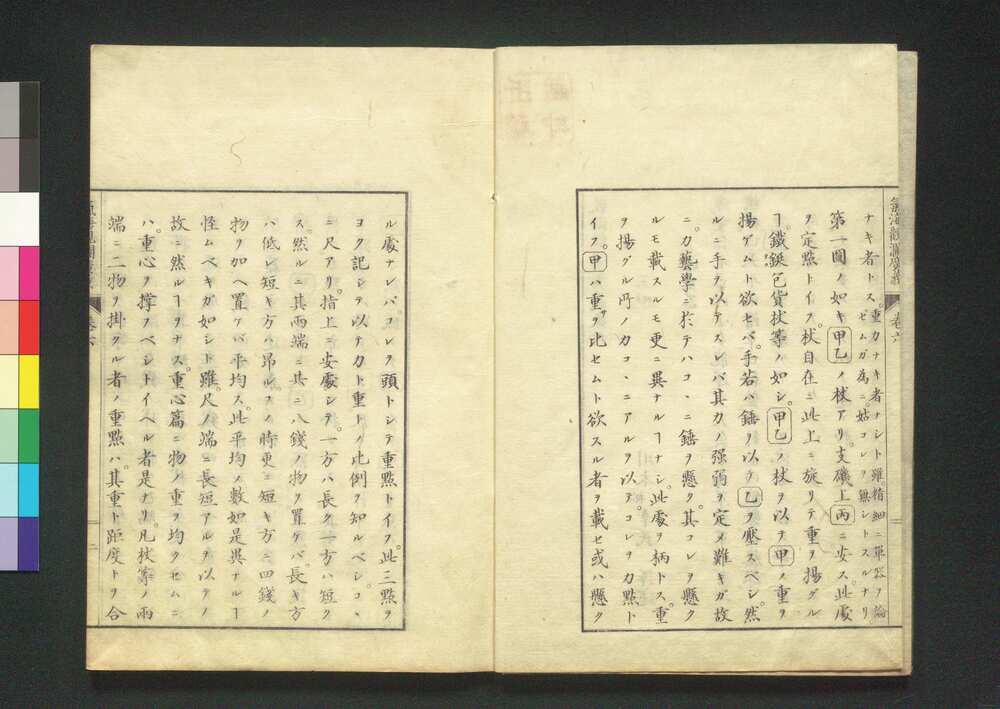 氣海觀瀾廣義 卷六
ナキ者トス。重力ナキ者ナシト雖、精細ニ單器ヲ論
ゼムガ爲ニ姑コレヲ無シトスルナリ
第一圖ノ如キ甲乙ノ杖アリ。支礒上丙ニ安ス。此處
ヲ定點トイフ。杖自在ニ此上ニ旋リテ重ヲ揚グル
ヿ、鐵鋌包貨扙等ノ如シ。甲乙ノ杖ヲ以テ甲ノ重ヲ
揚ゲムト欲セバ、手若ハ錘ヲ以テ乙ヲ壓スベシ。然
ルニ手ヲ以テスレバ其力ノ强弱ヲ定メ難キガ故
ニ、力藝學ニ於テハコヽニ錘ヲ懸ク。其コレヲ懸ク
ルモ載スルモ更ニ異ナルヿナシ。此處ヲ柄トス。重
ヲ揚グル所ノカコヽニアルヲ以テ、コレヲ力點ト
イフ。甲ハ重ヲ比セムト欲スル者ヲ載セ或ハ懸ク
ル處ナレバ、コレヲ頭トシテ重點トイフ。此三點ヲ
ヨク記シテ以テ力ト重トノ比例ヲ知ルベシ。コヽ
ニ尺アリ。指上ニ安處シテ、一方ハ長ク一方ハ短ク
ス。然ルニ其兩端ニ其二八錢ノ物ヲ置ケバ、長キ方
ハ低レ短キ方ハ昂ル。ソノ時更ニ短キ方ニ四錢ノ
物ヲ加ヘ置ケバ平均ス。此平均ノ數如是異ナルヿ
怪ムベキガ如シト雖、尺ノ端ニ長短アルヲ以テノ
故ニ然ルヿヲナス。重心篇ニ物ノ重ヲ均クセムニ
ハ、重心ヲ撐フベシトイヘル者是ナリ。凡杖等ノ兩
端ニ二物ヲ掛クル者ノ重點ハ、其重ト距度トヲ合
卷六
二